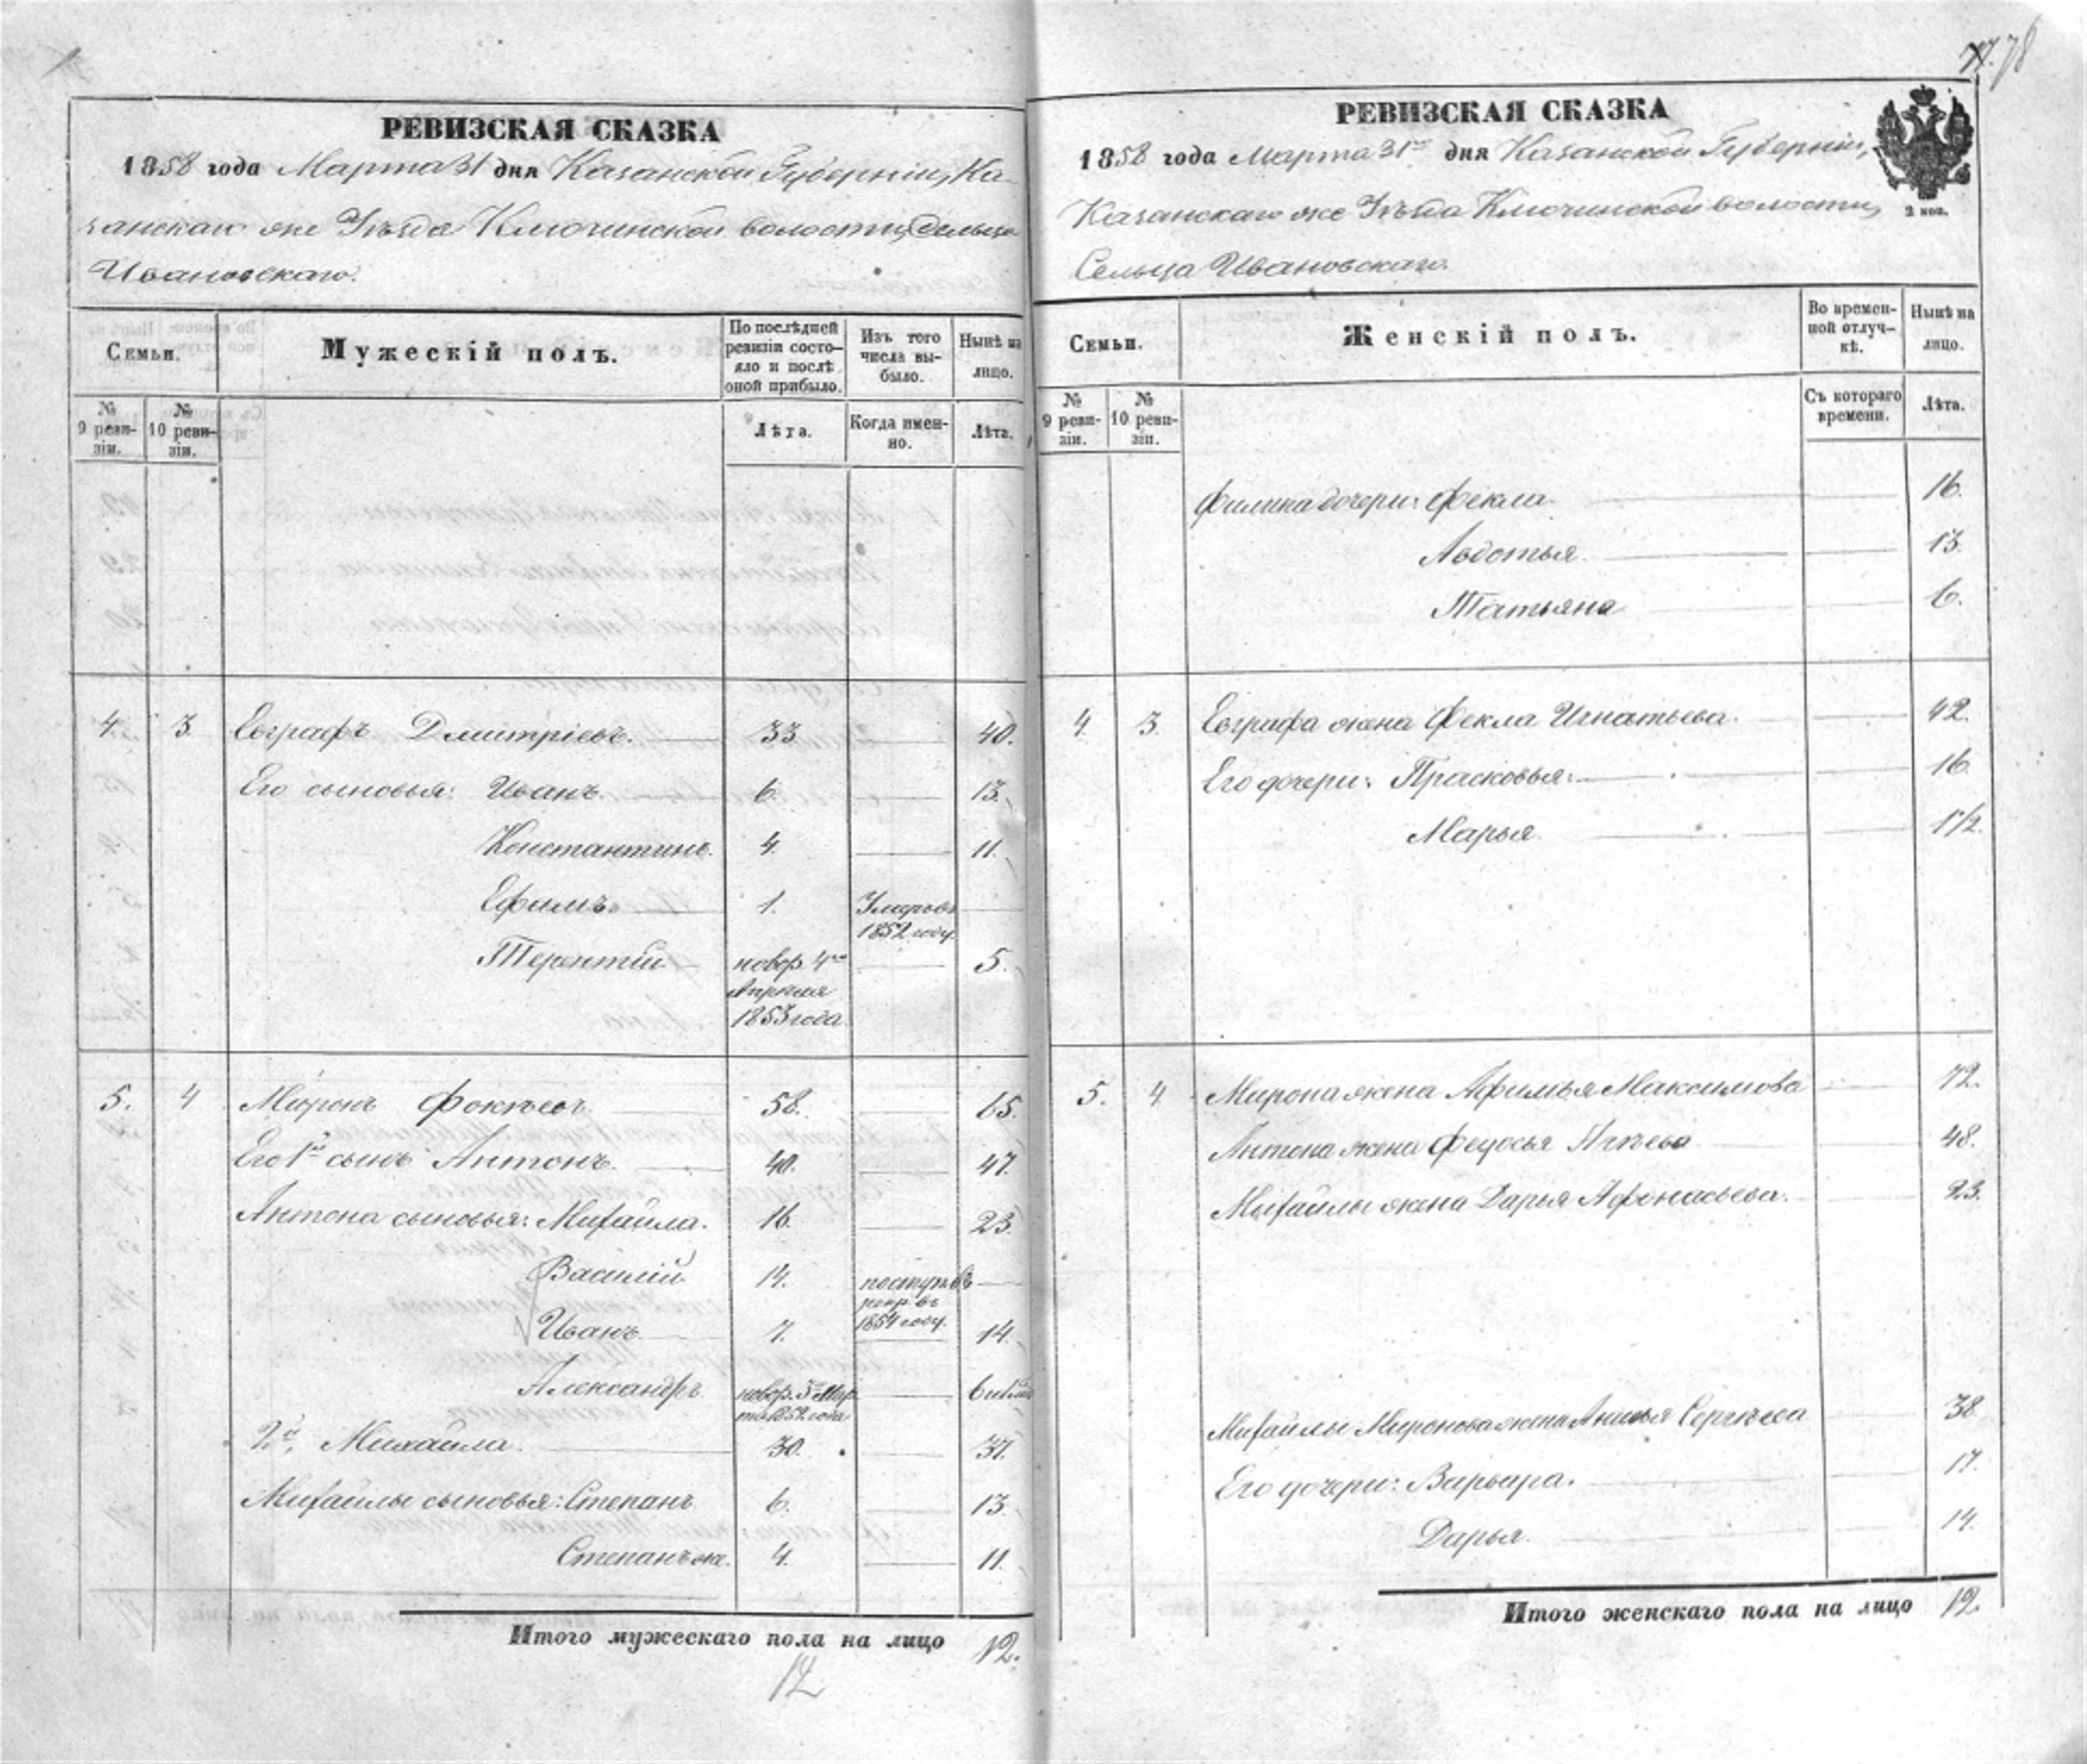 77. 78
РЕВИЗСКАЯ СКАЗКА
1858 года Марта 31 дня Казанской Губерніи, Ка-
занскаго же Уѣзда Ключинской волости, Сельца
Ивановскаго.
Семьи.
Мужескій полъ.
По послѣдней ревизіи состо-
яло и послѣ оной прибыло.
Изъ того числа вы-
было.
Нынѣ на лицо.
№ 9 реви-
зіи.
№ 10 реви-
зіи.
Лѣта.
Когда имен-
но.
Лѣта.
4. 3. Евграфъ Дмитріевъ. 33 40.
Его сыновья: Иванъ. 6. 13.
Константинъ. 4. 11.
Ефимъ. 1. Умеръ въ
1852 году.
Терентій новор. 4го 5.
Апрѣля
1853 года
5. 4 Миронъ Фокѣевъ 58. 65.
Его 1й сынъ Антонъ. 40. 47.
Антона сыновья: Михайла. 16. 23.
Василій 14. поступ. въ
рекр. въ
1854 году.
Иванъ 7. 14.
Александръ новор. 5го Мар-
та 1852 года
2й, Михайла 30. 37.
Михайлы сыновья: Степанъ 6. 13.
Степанъ же. 4. 11.
Итого мужескаго пола на лицо 12.
12
РЕВИЗСКАЯ СКАЗКА
1858 года Марта 31го дня Казанской Губерніи,
Казанскаго же Уѣзда Ключинской волости,
Сельца Ивановскаго.
2 коп.
Семьи.
Женскій полъ.
Во времен-
ной отлуч-
кѣ.
Нынѣ на лицо.
№ 9 реви-
зіи.
№ 10 реви-
зіи.
Съ котораго времени.
Лѣта.
Филипа дочери: Фекла 16.
Авдотья 13.
Татьяна 6.
4. 3. Евграфа жена Фекла Игнатьева. 42.
Его дочери: Прасковья. 16
Марья 1 1/2.
5. 4. Мирона жена Афимья Максимова 72.
Антона жена Федосья 48.
Михайлы жена Дарья Афонасьева. 23.
Михайлы Миронова жена Анисья Сергѣева 38.
Его дочери: Варвара. 17.
Дарья 14.
Итого женскаго пола на лицо 12.